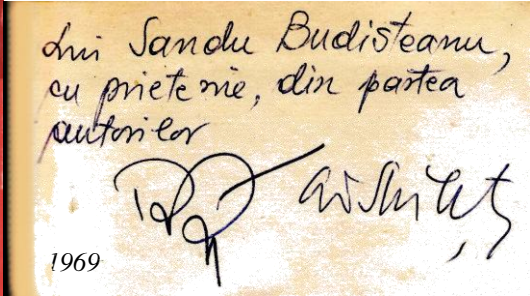 Lui Sandu Budisteanu,
cu prietenie, din partea
autorilor
1969